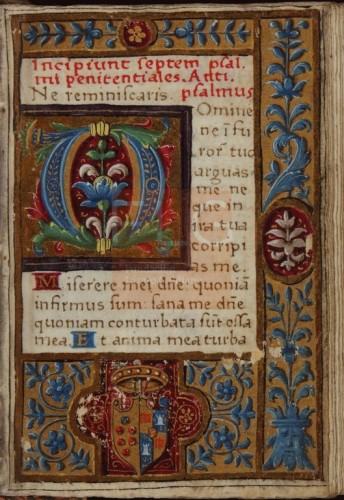 Incipiunt septem psal
mi penitentiales. Añ.
Ne reminiscaris. psalmus
Domine
ne ĩ fu
rore tuo
arguas
me: ne
que in
ira tua
corripi
as me.
Miserere mei dñe: quoniã
infirmus sum: sana me dñe
quoniam conturbata sũt ossa
mea. Et anima mea turba